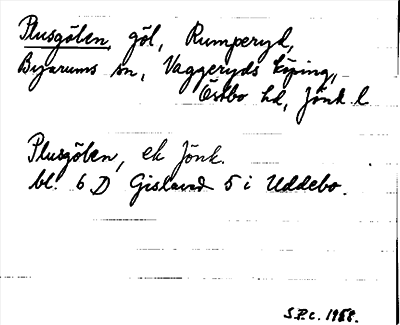 Plusgölen, göl, Rumperyd,
Byarums sn, Vaggeryds köping,
Östbo hd, Jönk. l
Plusgölen, ek Jönk.
bl. 6 D Gislaved 5 i Uddebo.
S.P.c. 1968.